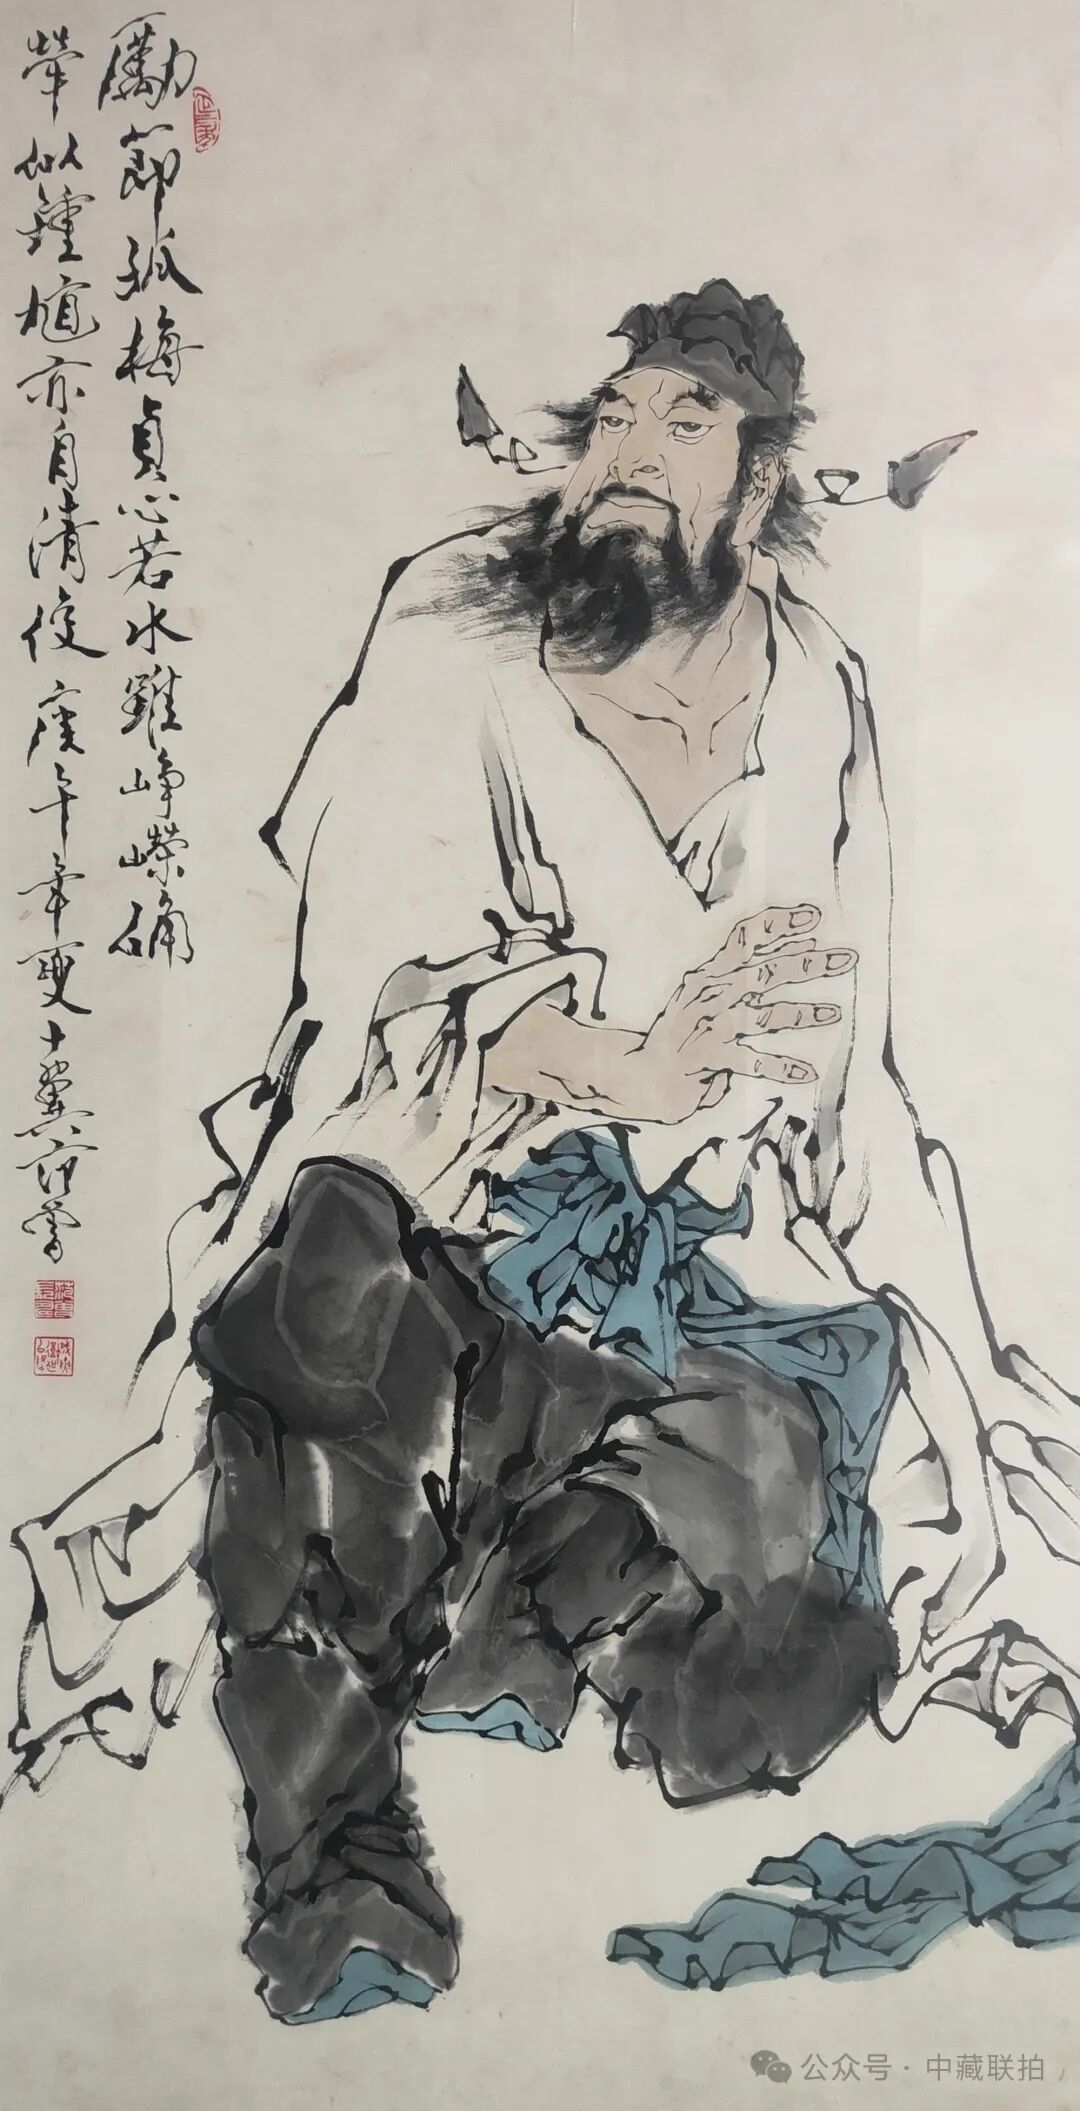 勵節孤梅貞心若水雖崢嶸确
犖似鍾馗亦自清俊庚午年夏十翼范曾
公众号 · 中藏联拍